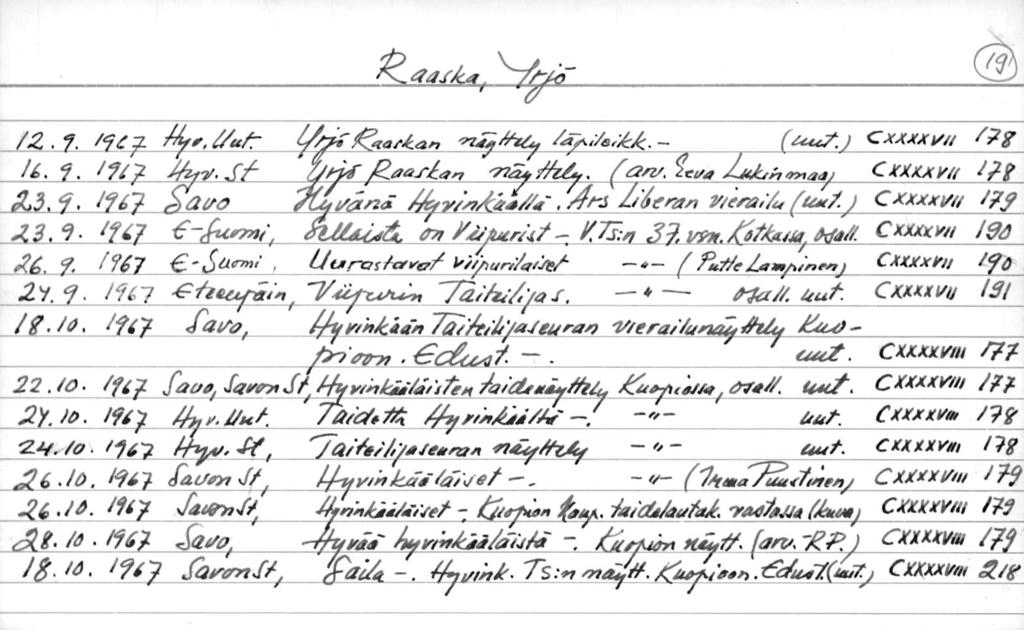 Raaska, Yrjö
19
12.9. 1967 Hyv.Uut. Yrjö Raaskan näyttely läpileikk.- (uut.) CXXXXVII 178
16.9. 1967 Hyv. St Yrjö Raaskan näyttely. (arv. Eeva Lukinmaa) CXXXXVII 178
23.9. 1967 Savo Hyvänä Hyvinkäällä. Ars Liberan vierailu (uut.) CXXXXVII 179
23.9. 1967 E-Suomi, Sellaista on Viipurist -. V.Ts:n 37. vsn. Kotkassa, osall. CXXXXVII 190
26.9. 1967 E-Suomi, Uurastavat viipurilaiset -"- (Putte Lampinen) CXXXXVII 190
24.9. 1967 Eteenpäin, Viipurin Taiteilijas. -"- osall. uut. CXXXXVII 191
18.10. 1967 Savo, Hyvinkään Taiteilijaseuran vierailunäyttely Kuo-
pioon. Edust. -. uut. CXXXXVIII 177
22.10. 1967 Savo, Savon St, Hyvinkääläisten taidenäyttely Kuopiossa, osall. uut. CXXXXVIII 177
24.10. 1967 Hyv.Uut. Taidetta Hyvinkäältä -. -"- uut. CXXXXVIII 178
24.10. 1967 Hyv. St, Taiteilijaseuran näyttely -"- uut. CXXXXVIII 178
26.10. 1967 Savon St, Hyvinkääläiset -. -"- (Irma Puustinen) CXXXXVIII 179
26.10. 1967 Savon St, Hyvinkääläiset - Kuopion Kaup. taidelautak. vastassa (kuva) CXXXXVIII 179
28.10. 1967 Savo, Hyvää hyvinkääläistä -. Kuopion näytt. (arv.-R.P.) CXXXXVIII 179
18.10. 1967 Savon St, Saila -. Hyvink. Ts:n näytt. Kuopioon. Edust. (uut.) CXXXXVIII 218